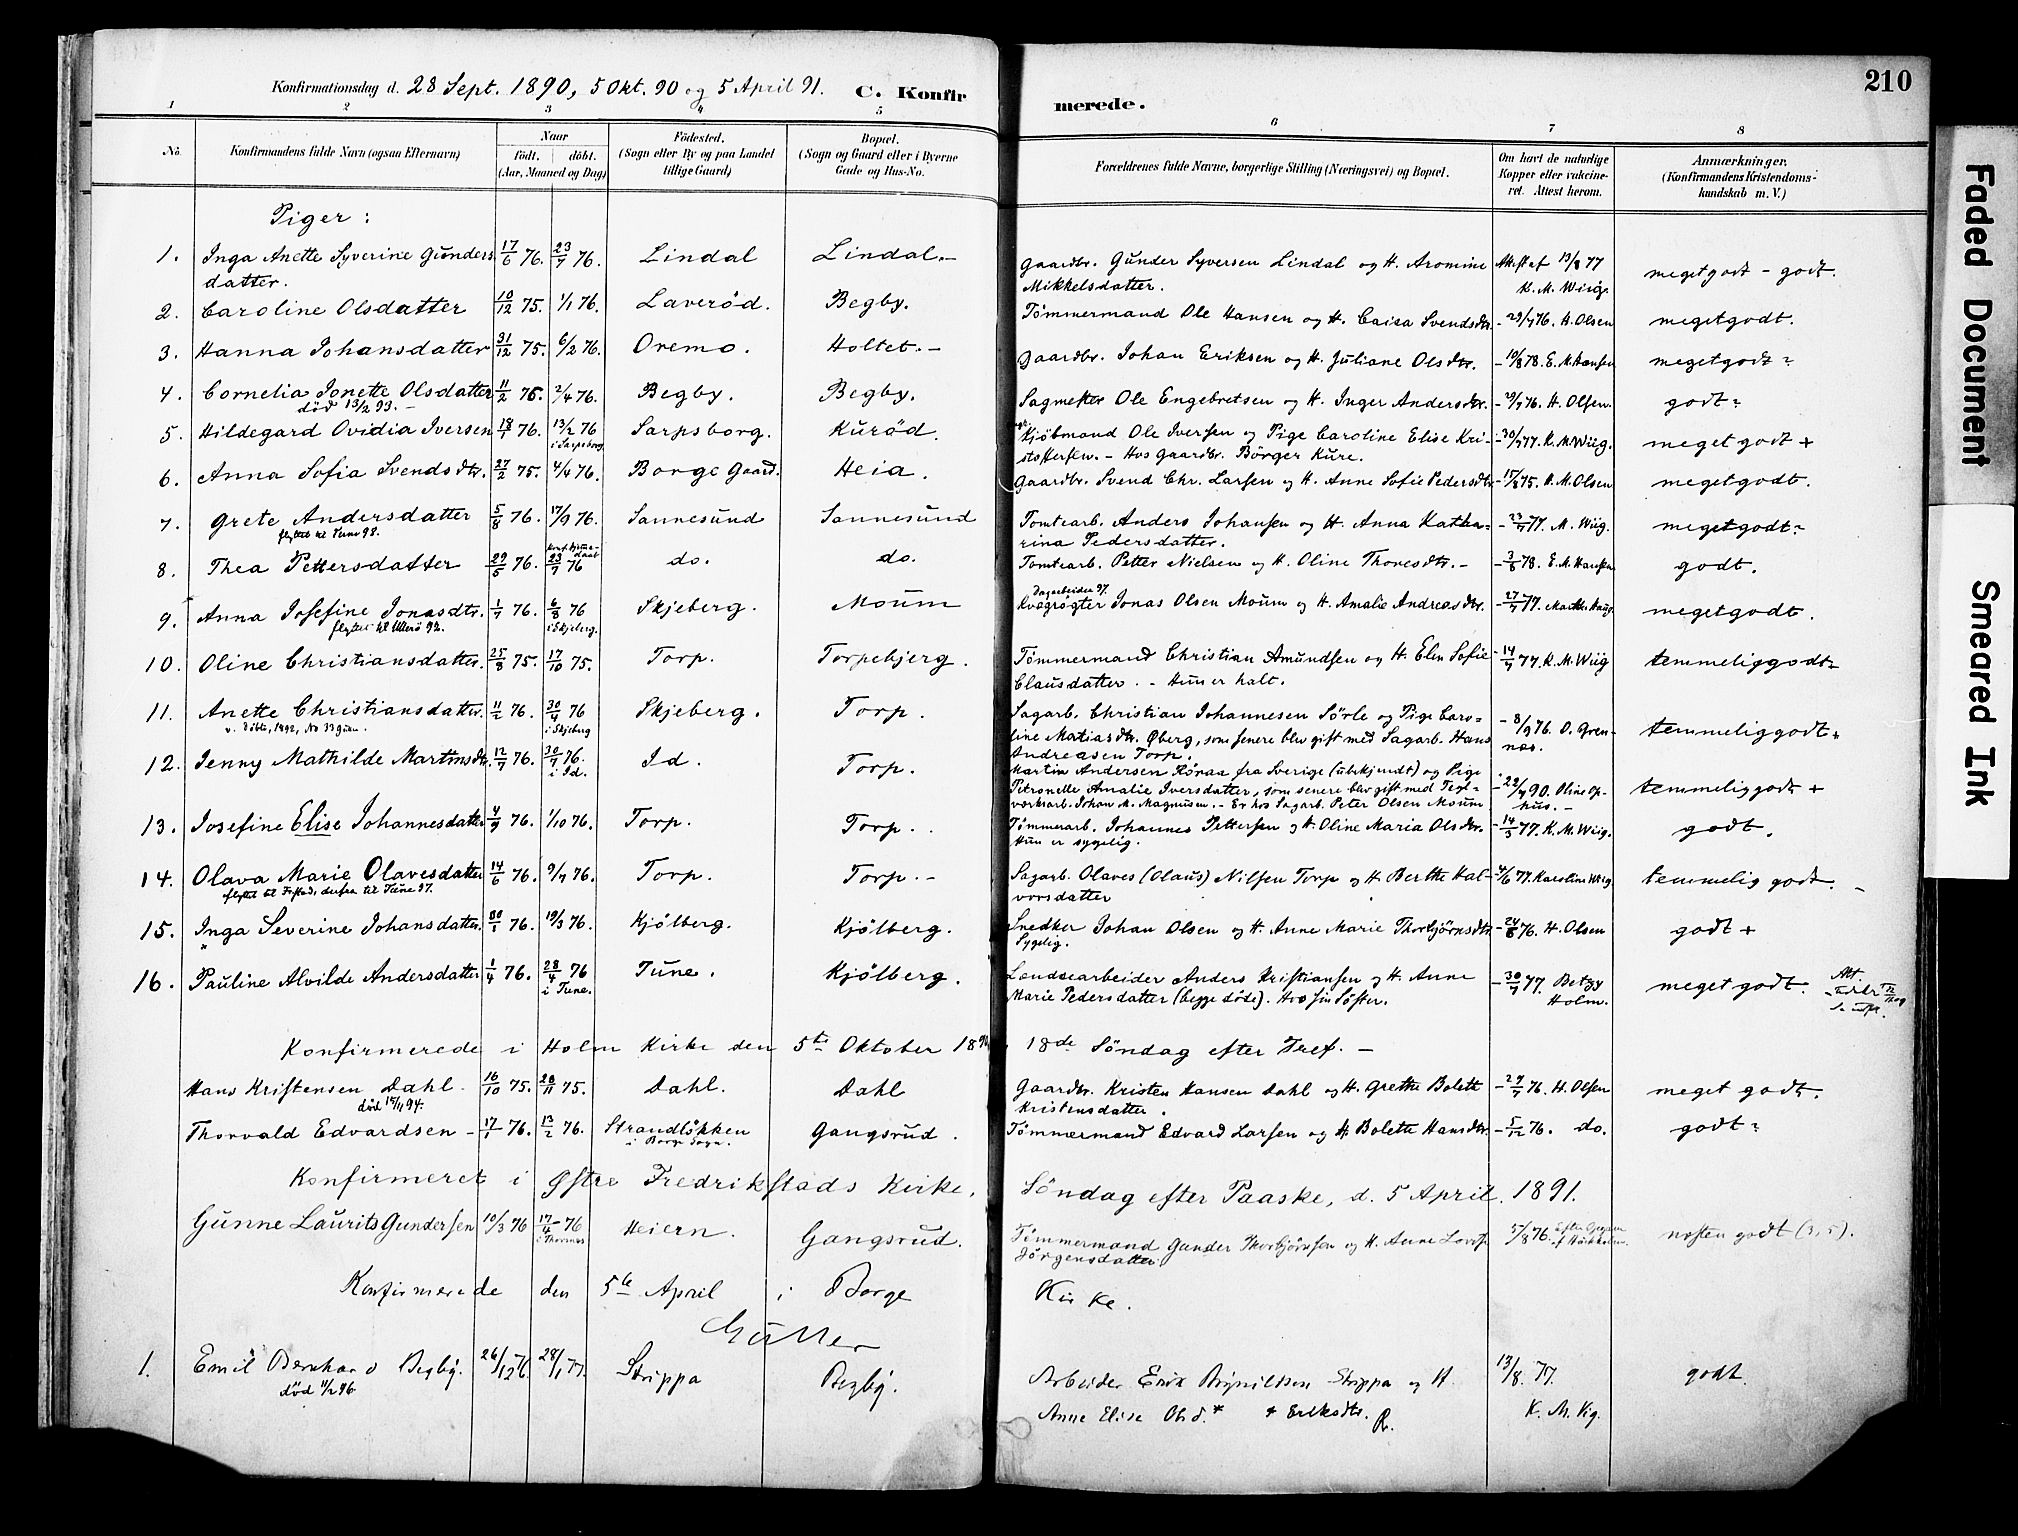 Konfirmationsdag d. 28 Sept. 1890, 5 Okt. 90 og 5 April 91. C. Konfirmerede. 210
1 2 3 4 5 6 7 8
No. Konfirmandens fulde Navn (ogsaa Efternavn) Naar födt. döbt. (Aar, Maaned og Dag) Födested. (Sogn eller By og paa Landet tillige Gaard) Bopæl. (Sogn og Gaard eller i Byerne Gade og Hus-No. Forældrenes fulde Navne, borgerlige Stilling (Næringsvei) og Bopæl. Om havt de naturlige Kopper eller vakcineret. Attest herom. Anmærkninger. (Konfirmandens Kristendomskundskab m. V.)
Piger:
1. Inga Anette Syverine Gundersdatter. 17/6 76. 23/7 76. Lindal Lindal.– Gaardbr. Gunder Syversen Lindal og H. Aromine Mikkelsdatter. Attest af 13/8 77 K. M. Wiig. meget godt – godt.
2. Caroline Olsdatter 10/12 75. 1/1 76. Laveröd. Begby. Tömmermand Ole Hansen og H. Caisa Svendsdtr. – 29/7 76. H. Olsen meget godt.
3. Hanna Johansdatter 31/12 75. 6/2 76. Oremo. Holtet.– Gaardbr. Johan Eriksen og H. Juliane Olsdtr. – 10/8 78. E. M. Hansen meget godt
4. Cornelia Jonette Olsdatter 11/2 76. 2/4 76. Begby. Begby. Sagmester Ole Engebretsen og H. Inger Andersdtr. – 29/7 76. H. Olsen. godt
død 13/2 93.–
5. Hildegard Ovidia Iversen 18/1 76. 13/2 76 i Sarpsborg Sarpsborg. Kuröd. Kjöbmand Ole Iversen og Pige Caroline Elise Kristoffersen.– Hos Gaardbr. Börger Kure. – 30/7 77. K. M. Wiig. meget godt +
6. Anna Sofia Svendsdtr. 27/2 75. 4/4 76. Borge Gaard. Heia. Gaardbr. Svend Chr. Larsen og H. Anne Sofie Pedersdtr – 15/8 75. H. M. Olsen meget godt.
7. Grete Andersdatter 5/8 76. 17/9 76. Sannesund Sannesund Tomtearb. Anders Johansen og H. Anna Katharina Pedersdatter. – 23/7 77. M. Wiig. meget godt
flyttet til Tune 98.
8. Thea Pettersdatter 29/5 76. 23/7 76 do. do. Tomtearb. Petter Nielsen og H. Oline Thoresdtr.– – 3/8 78. E. M. Hansen godt.
9. Anna Josefine Jonasdtr. 1/7 76. 6/8 76 i Skjeberg. Skjeberg. Moum Kvægrögter Jonas Olsen Moum og H. Amalie Andreasdtr. – 27/7 77. Marthe Haug. meget godt.
10. Oline Christiansdatter. 25/8 75. 17/10 75. Torp. Torpebjerg. Tömmermand Christian Amundsen og H. Elen Sofie Clausdatter.– Hun er halt. – 14/7 77. K. M. Wiig temmelig godt
11. Anette Christiansdatter. 11/2 76. 30/4 76 i Skjeberg Skjeberg. Torp. Sagarb. Christian Johannesen Sörle og Pige Caroline Matiasdtr. Øberg, som senere blev gift med Sagarb. Hans Andreasen Torp. – 8/9 76. O. Grennæs. temmelig godt
12. Jenny Mathilde Martinsdtr. 12/7 76. 30/7 76. i Id. Id. Torp. Martin Andersen Röraa fra Sverige (ubekjendt) og Pige Petronelle Amalie Iversdatter, som senere blev gift med Teglverksarb. Johan M. Magnusen.– Er hos Sagarb. Peter Olsen Moum – 22/7 90. Oline Ophus.– temmelig godt +
13. Josefine Elise Johannesdatter 4/9 76. 1/10 76. Torp. Torp. Tömmerarb. Johannes Pettersen og H. Oline Maria Olsdtr. Hun er sygelig. – 14/3 77. K. M. Wiig. godt.
14. Olava Marie Olavesdatter 14/6 76. 9/7 76. Torp. Torp.– Sagarb. Olaves (Olaus) Nilsen Torp og H. Berthe Halvorsdatter 77. Karoline Wiig temmelig godt.
15. Inga Severine Johansdatter. 30/1 76. 19/3 76. Kjölberg. Kjölberg. Snedker Johan Olsen og H. Anne Marie Thorbjörnsdtr Sygelig. – 24/8 76. H. Olsen godt +
16. Pauline Alvilde Andersdatter 1/4 76. 28/4 76 i Tune. Tune. Kjölberg. Landsearbeider Anders Kristiansen og H. Anne Marie Pedersdatter (begge döde). Hos sin Söster. – 30/7 77. Betzy Holm. meget godt.
Konfirmerede i Holm Kirke den 5te Oktober 1890, 18de Söndag efter Tref.–
Hans Kristensen Dahl. 16/10 75. 28/11 75. Dahl. Dahl Gaardbr. Kristen Hansen Dahl og H. Grethe Bolette Kristensdatter. – 29/7 76. H. Olsen meget godt.
død 15/11 94.
Thorvald Edvardsen – 17/1 76. 13/2 76. Strandlökken i Borge Sogn. Gangsrud. Tömmermand Edvard Larsen og H. Bolette Hansdtr. – 5/12 76. do. godt
Konfirmeret i Østre Fredrikstads Kirke, Söndag efter Paaske, d. 5 April. 1891.
Gunne Laurits Gundersen 10/3 76 17/4 – 76 Heiern. Gangsrud. Tömmermand Gunder Thorbjörnsen og H. Anne Lovise Jörgensdatter 5/8 76. næsten godt (3,5).
Konfirmerede den 5te April i Borge Kirke.
Gutter
1. Emil Bernhard Begby. 26/12 76. 28/1 77. Strippa Begby. Arbeider Erik Brynildsen Strippa og H. Anne Elise Olsd.* * Eriksdtr. R. 13/8. 77. K. M. Vig. godt.
død 11/2 96
Faded Document
Smeared Ink